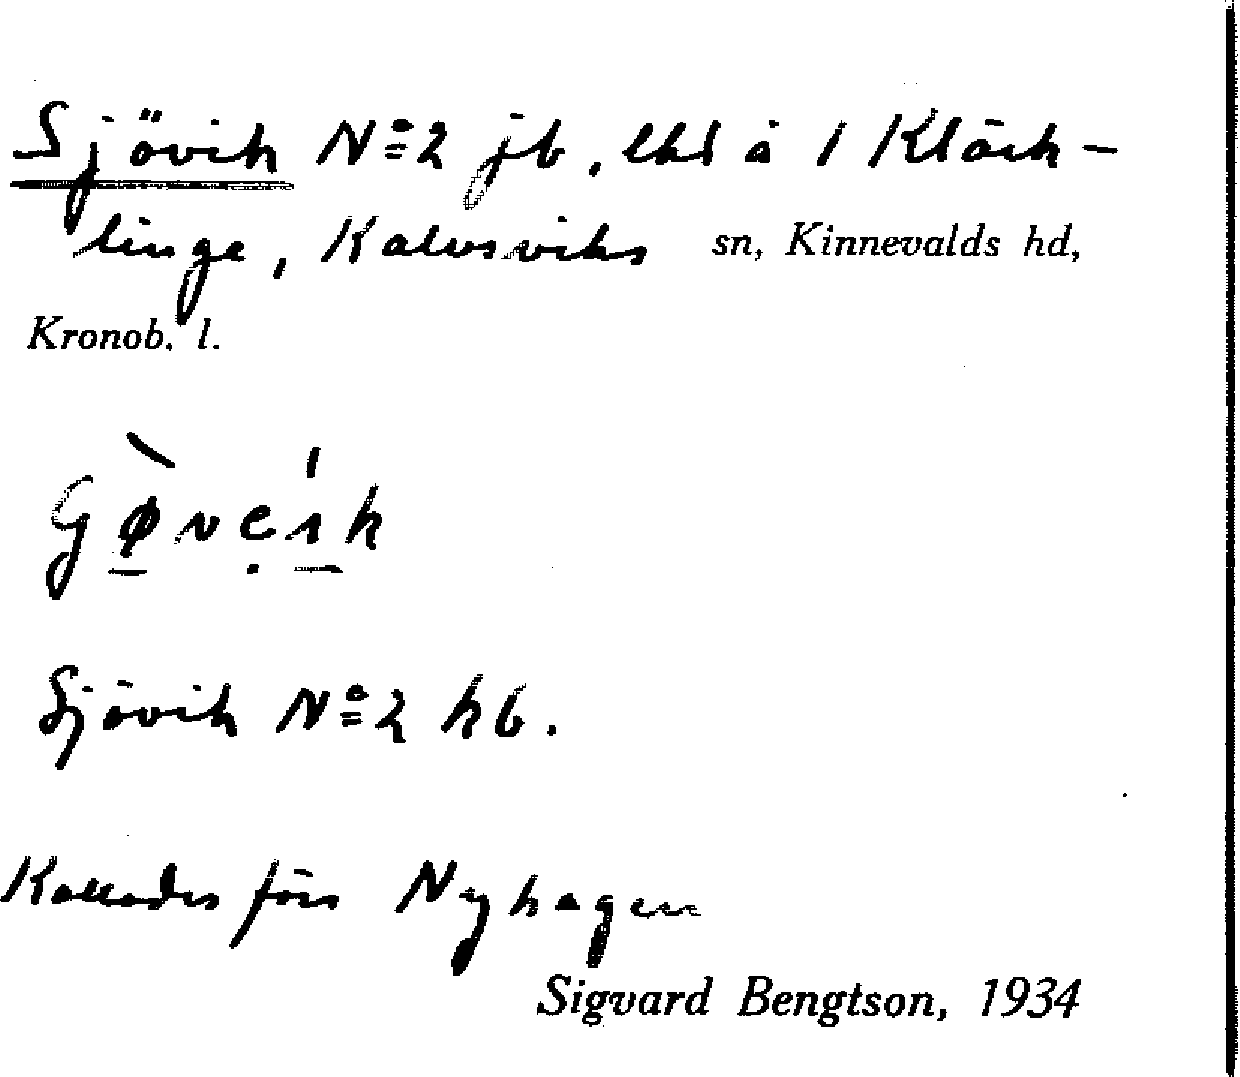 Sjövik No 2 jb, lhl å 1 Kläck-
linge, Kalvsviks sn, Kinnevalds hd,
Kronob. l.
Sjövik No 2 kb.
Kallades förs Nyhagen
Sigvard Bengtson, 1934